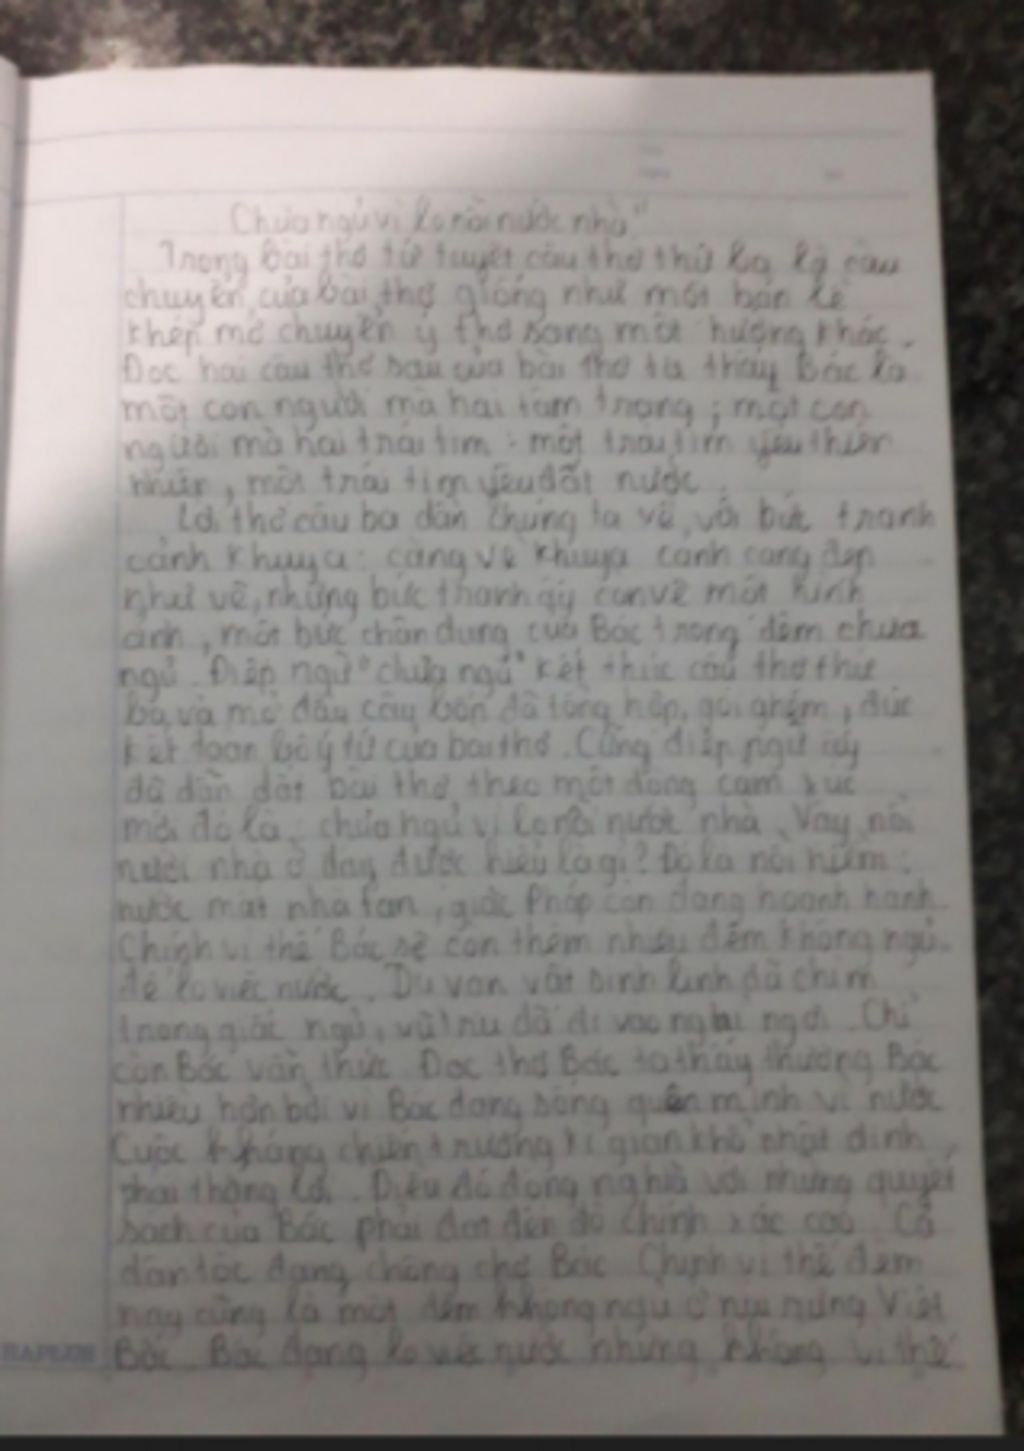 Chưa ngủ vì lo nỗi nước nhà"
Trong bài thơ tứ tuyệt câu thơ thứ ba là câu
chuyển của bài thơ giống như một bản lề
khép mở chuyển ý thơ sang một hướng khác.
Đọc hai câu thơ sau của bài thơ ta thấy Bác là
một con người mà hai tâm trạng; một con
người mà hai trái tim: một trái tim yêu thiên
nhiên, một trái tim yêu đất nước.
Lời thơ câu ba dẫn chúng ta về với bức tranh
cảnh khuya: càng về khuya cảnh càng đẹp
như vẽ, những bức tranh ấy còn vẽ một hình
ảnh, một bức chân dung của Bác trong đêm chưa
ngủ. Điệp ngữ "chưa ngủ" kết thúc câu thơ thứ
ba và mở đầu câu bốn đã tổng hợp, gói ghém, đúc
kết toàn bộ ý tứ của bài thơ. Cũng điệp ngữ ấy
đã dẫn dắt bài thơ theo một dòng cảm xúc
mới đó là: chưa ngủ vì lo nỗi nước nhà. Vậy nỗi
nước nhà ở đây được hiểu là gì? Đó là nỗi niềm:
nước mất nhà tan, giặc Pháp còn đang hoành hành.
Chính vì thế Bác sẽ còn thêm nhiều đêm không ngủ
để lo việc nước. Dù vạn vật sinh linh đã chìm
trong giấc ngủ, vũ trụ đã đi vào nghỉ ngơi. Chỉ
còn Bác vẫn thức. Đọc thơ Bác ta thấy thương Bác
nhiều hơn bởi vì Bác đang sống quên mình vì nước.
Cuộc kháng chiến trường kì gian khổ nhất định
phải thắng lợi. Điều đó đồng nghĩa với những quyết
sách của Bác phải đạt đến độ chính xác cao. Cả
dân tộc đang chờ Bác. Chính vì thế đêm
nay cũng là một đêm không ngủ ở núi rừng Việt
Bắc. Bác đang lo việc nước nhưng không vì thế